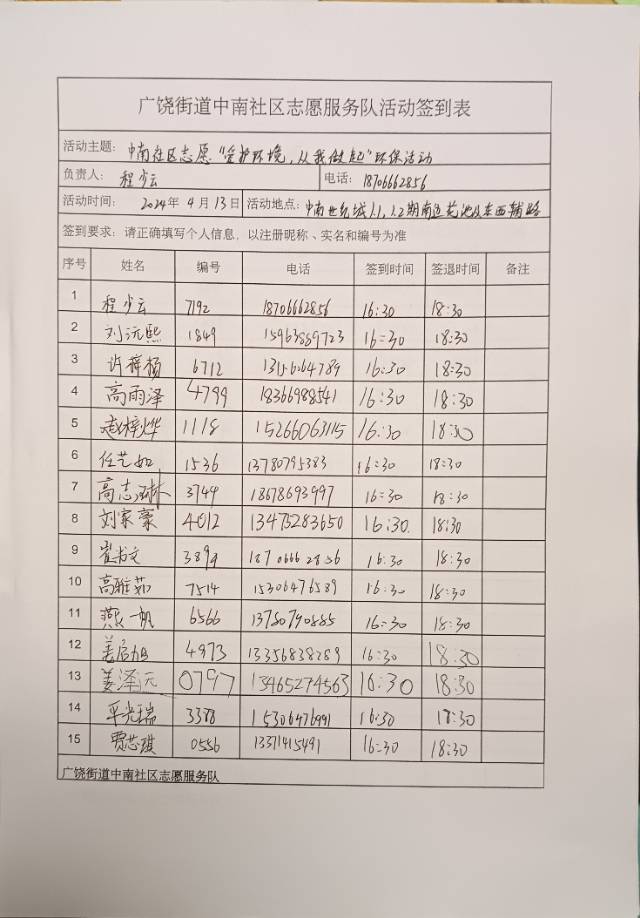 广饶街道中南社区志愿服务队活动签到表
活动主题：中南社区志愿“爱护环境，从我做起”环保活动
负责人：程少云 电话：18706662856
活动时间：2024年4月13日 活动地点：中南世纪城1.1,1.2期南边花池以东西辅路
签到要求：请正确填写个人信息，以注册昵称、实名和编号为准
序号 姓名 编号 电话 签到时间 签退时间 备注
1 程少云 7192 18706662856 16:30 18:30
2 刘沅熙 1849 15963889723 16:30 18:30
3 许梓杨 6712 16:30 18:30
4 高雨泽 4799 18366988541 16:30 18:30
5 赵梓烨 1118 15266063115 16:30 18:30
6 任艺如 1536 13780795383 16:30 18:30
7 高志琳 3744 18678693997 16:30 18:30
8 刘家豪 4012 13475283650 16:30 18:30
9 18706662856 16:30 18:30
10 高雅茹 7514 15306476589 16:30 18:30
11 燕一帆 6566 13780790885 16:30 18:30
12 姜启旭 4973 13356838289 16:30 18:30
13 姜泽元 0797 13465274563 16:30 18:30
14 平光瑞 3388 15306476991 16:30 18:30
15 贾芯琪 0556 13371415491 16:30 18:30
广饶街道中南社区志愿服务队